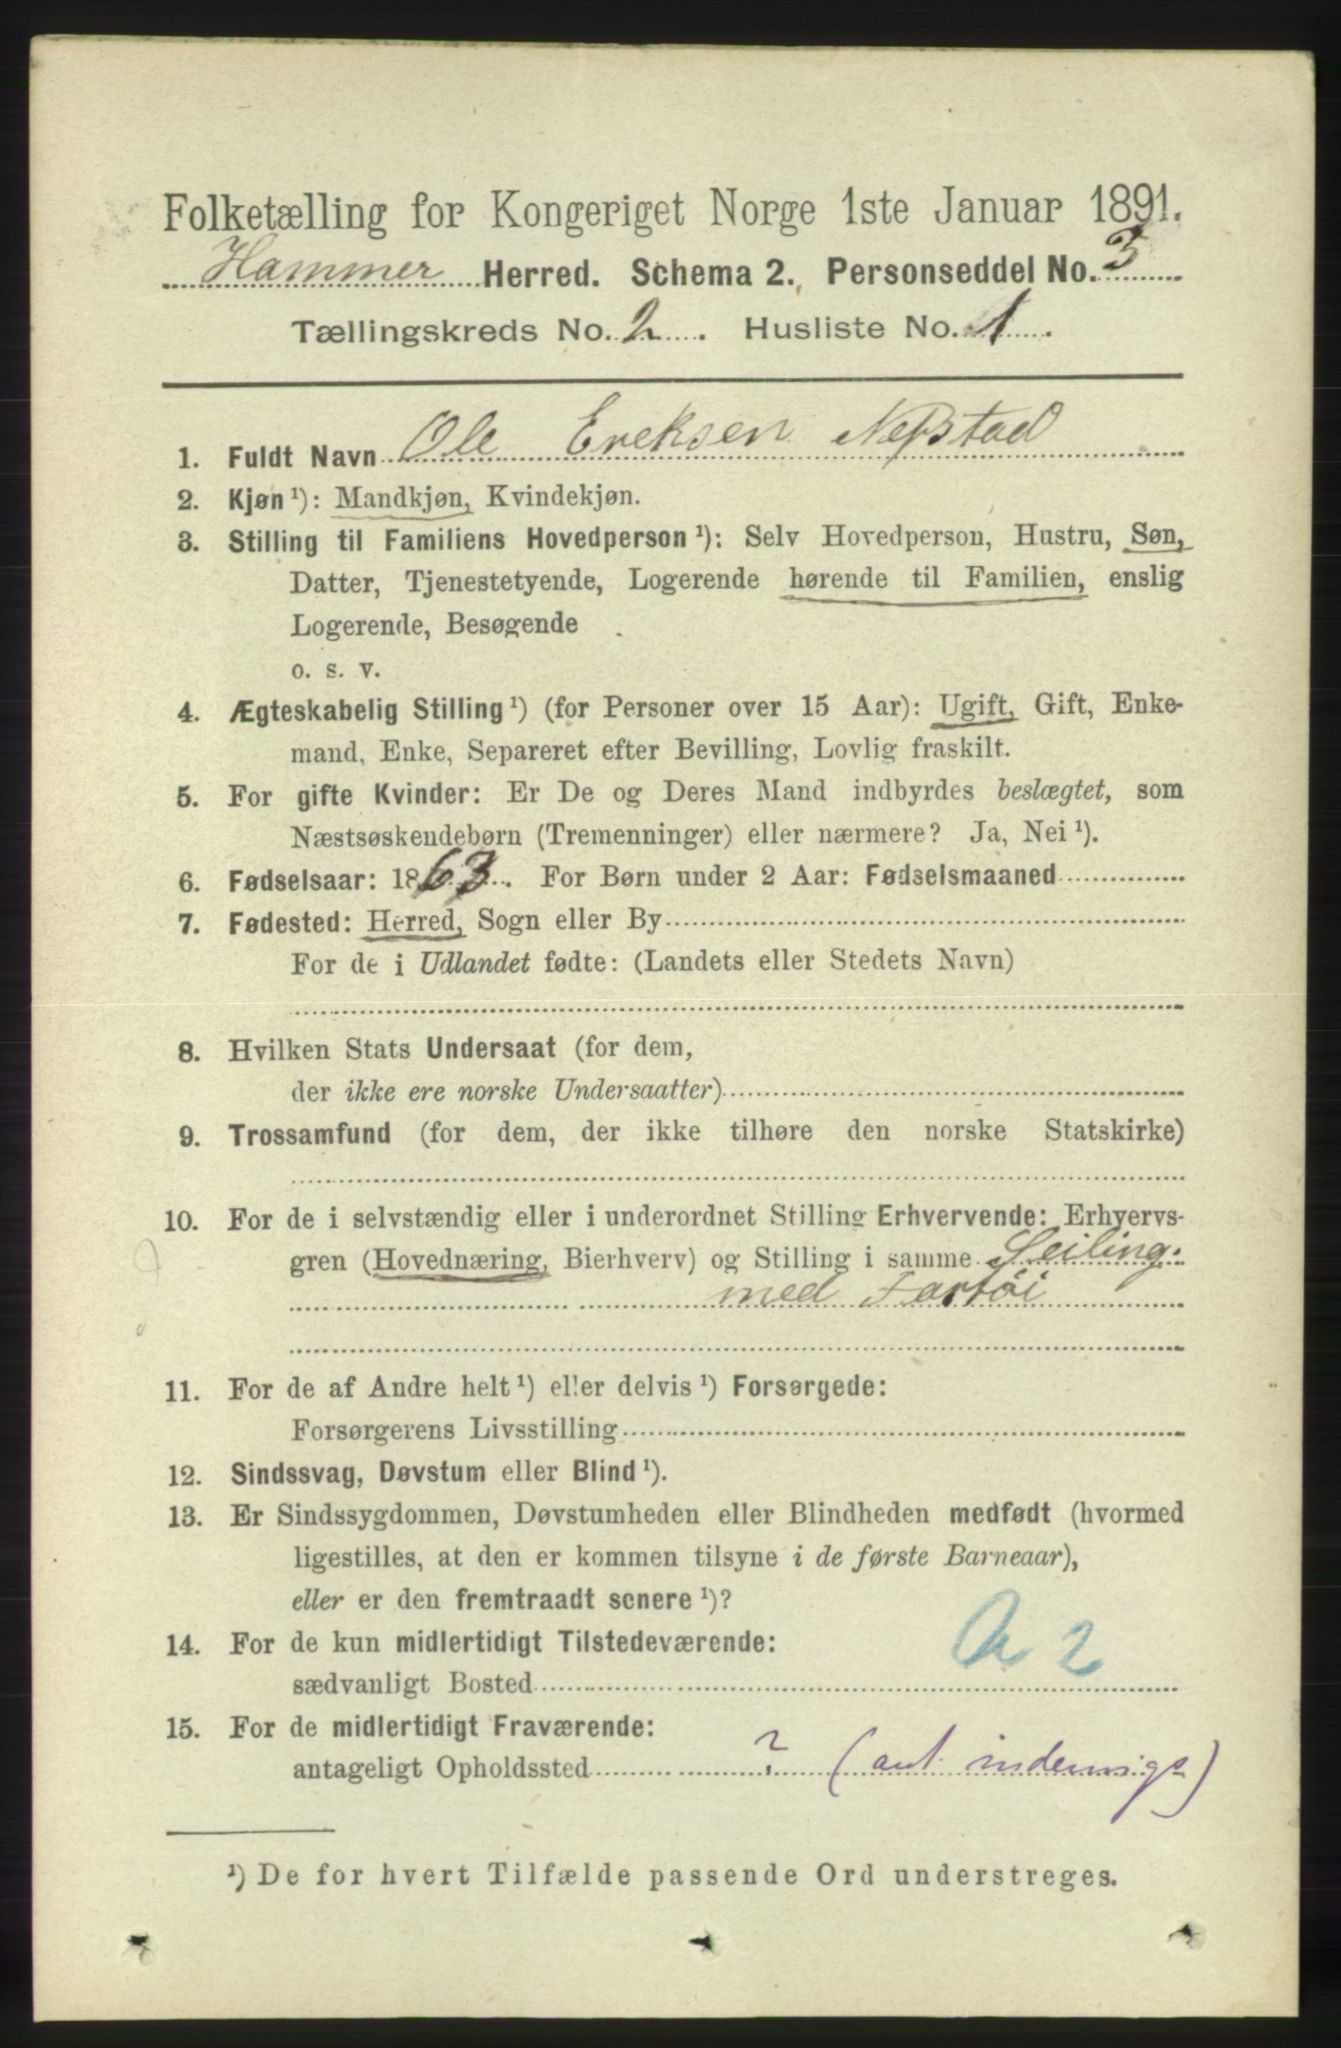 Folketælling for Kongeriget Norge 1ste Januar 1891.
Hammer Herred. Schema 2. Personseddel No. 3
Tællingskreds No. 2. Husliste No. 1.
1. Fuldt Navn Ole Ereksen Neßtad
2. Kjøn¹): Mandkjøn, Kvindekjøn.
3. Stilling til Familiens Hovedperson¹): Selv Hovedperson, Hustru, Søn,
Datter, Tjenestetyende, Logerende hørende til Familien, enslig
Logerende, Besøgende
o. s. v.
4. Ægteskabelig Stilling¹) (for Personer over 15 Aar): Ugift, Gift, Enke-
mand, Enke, Separeret efter Bevilling, Lovlig fraskilt.
5. For gifte Kvinder: Er De og Deres Mand indbyrdes beslægtet, som
Næstsøskendebørn (Tremenninger) eller nærmere? Ja, Nei¹).
6. Fødselsaar: 1863. For Børn under 2 Aar: Fødselsmaaned
7. Fødested: Herred, Sogn eller By
For de i Udlandet fødte: (Landets eller Stedets Navn)
8. Hvilken Stats Undersaat (for dem,
der ikke ere norske Undersaatter)
9. Trossamfund (for dem, der ikke tilhøre den norske Statskirke)
10. For de i selvstændig eller i underordnet Stilling Erhvervende: Erhvervs-
gren (Hovednæring, Bierhverv) og Stilling i samme Seiling.
med Fartöi
11. For de af Andre helt¹) eller delvis¹) Forsørgede:
Forsørgerens Livsstilling
12. Sindssvag, Døvstum eller Blind¹).
13. Er Sindssygdommen, Døvstumheden eller Blindheden medfødt (hvormed
ligestilles, at den er kommen tilsyne i de første Barneaar),
eller er den fremtraadt senere¹)?
14. For de kun midlertidigt Tilstedeværende:
sædvanligt Bosted
a 2
15. For de midlertidigt Fraværende:
antageligt Opholdssted ? (ant. indenrigs)
¹) De for hvert Tilfælde passende Ord understreges.